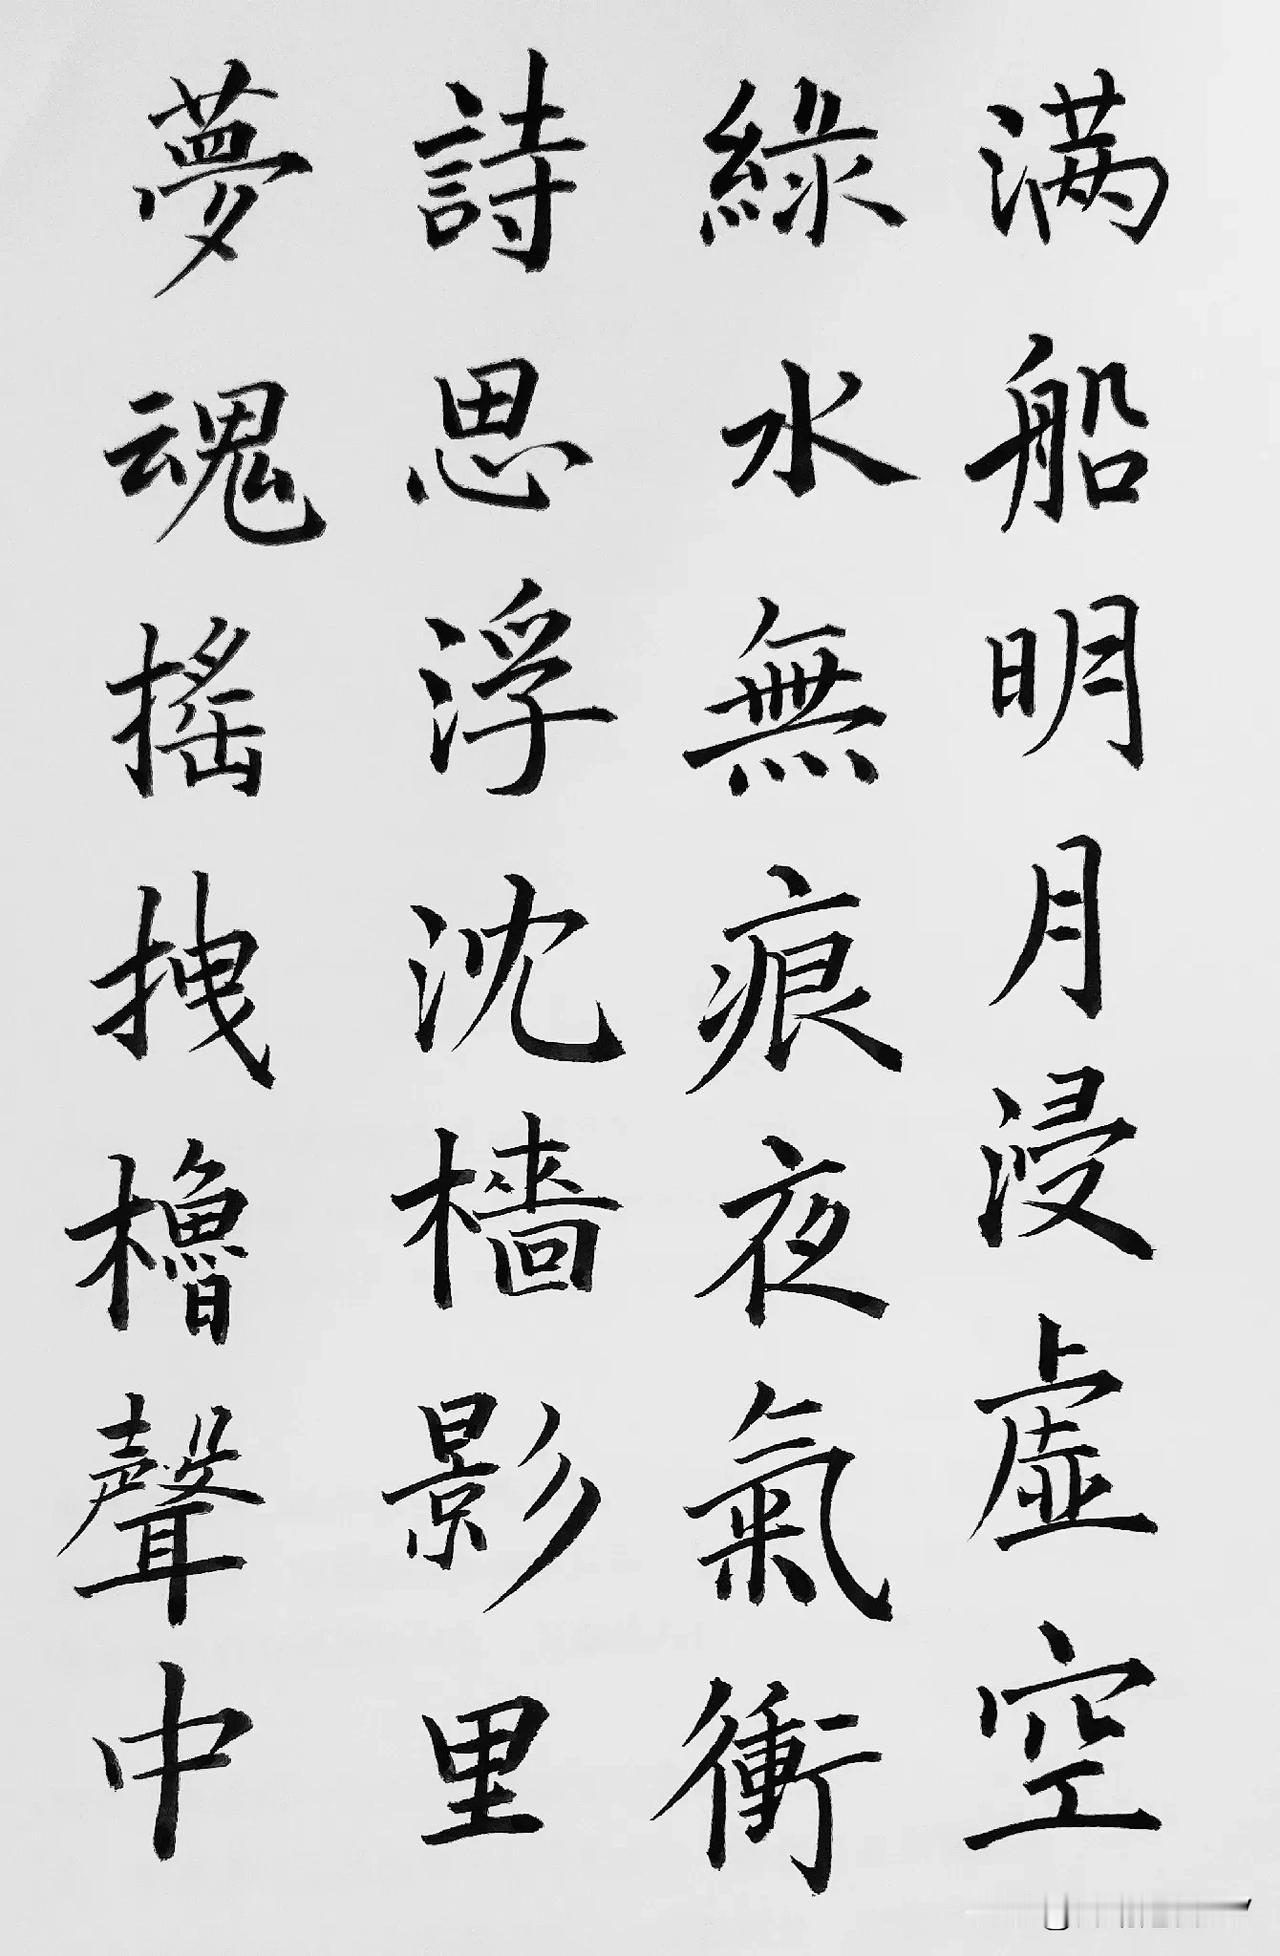 满船明月浸虛空
綠水無痕夜氣衝
詩思浮沈檣影里
夢魂搖拽櫓聲中